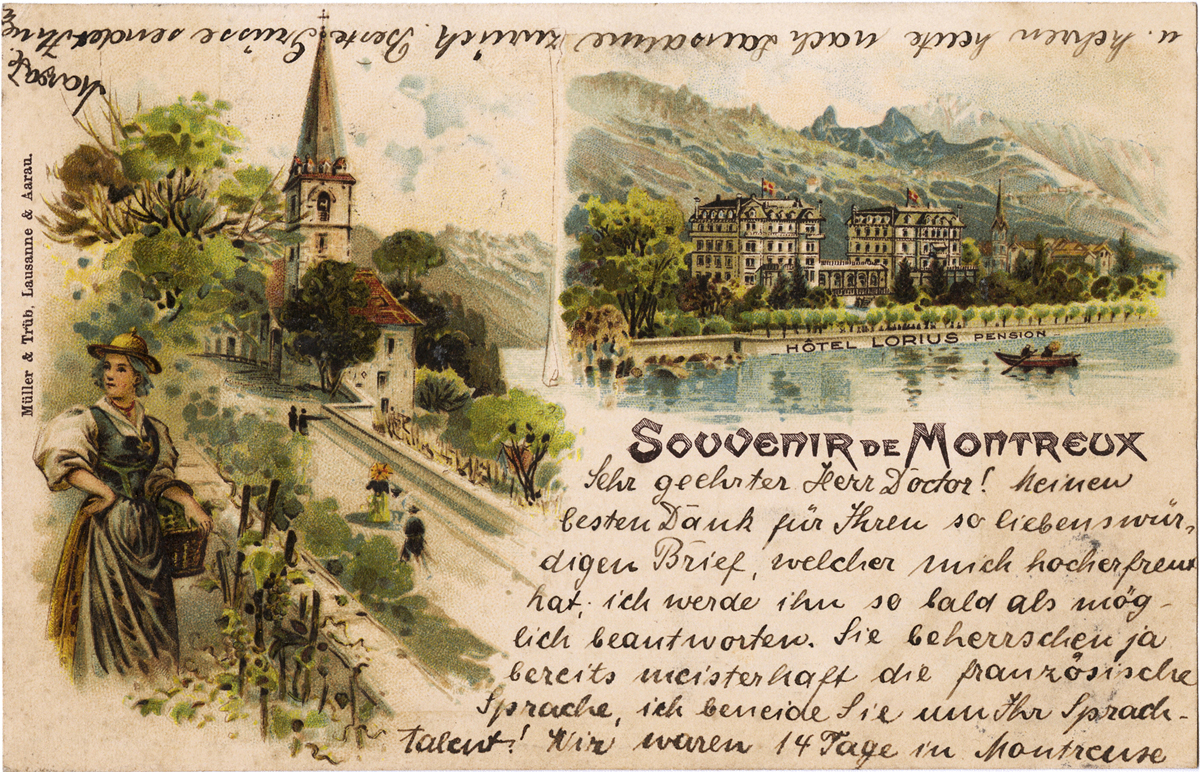 Müller & Trüb, Lausanne & Aarau.
HÔTEL LORIUS PENSION
SOUVENIR DE MONTREUX
Sehr geehrter Herr Doctor! Meinen
besten Dank für Ihren so liebenswür-
digen Brief, welcher mich hocherfreut
hat; ich werde ihn so bald als mög-
lich beantworten. Sie beherrschen ja
bereits meisterhaft die französische
Sprache, ich beneide Sie um Ihr Sprach-
talent! Wir waren 14 Tage in Montreuse
u. kehren heute nach Lausanne zurück. Beste Grüsse sendet Ihnen